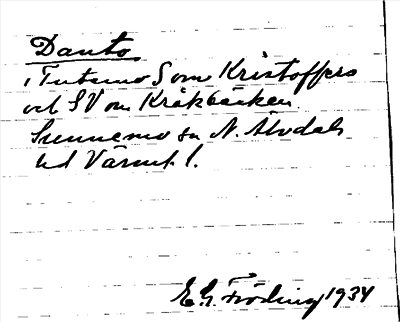 Danto
i Tutemo S om Kristoffers
och SV om Kråkbäcken.
Gunnemo sn N. Älvdals
hd Värml.
E G. Fröding 1934